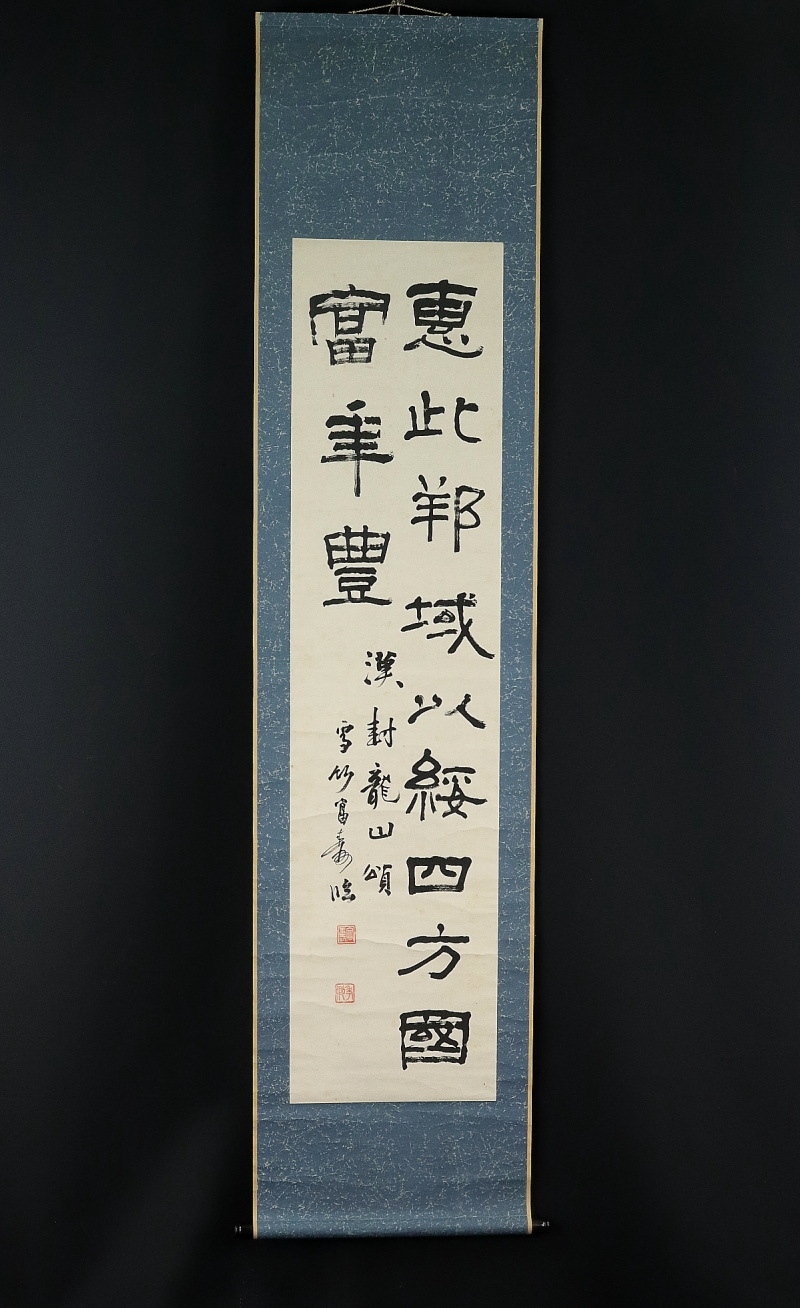 惠此邦域以綏四方國
富年豐
漢封龍山頌
雪竹富壽臨